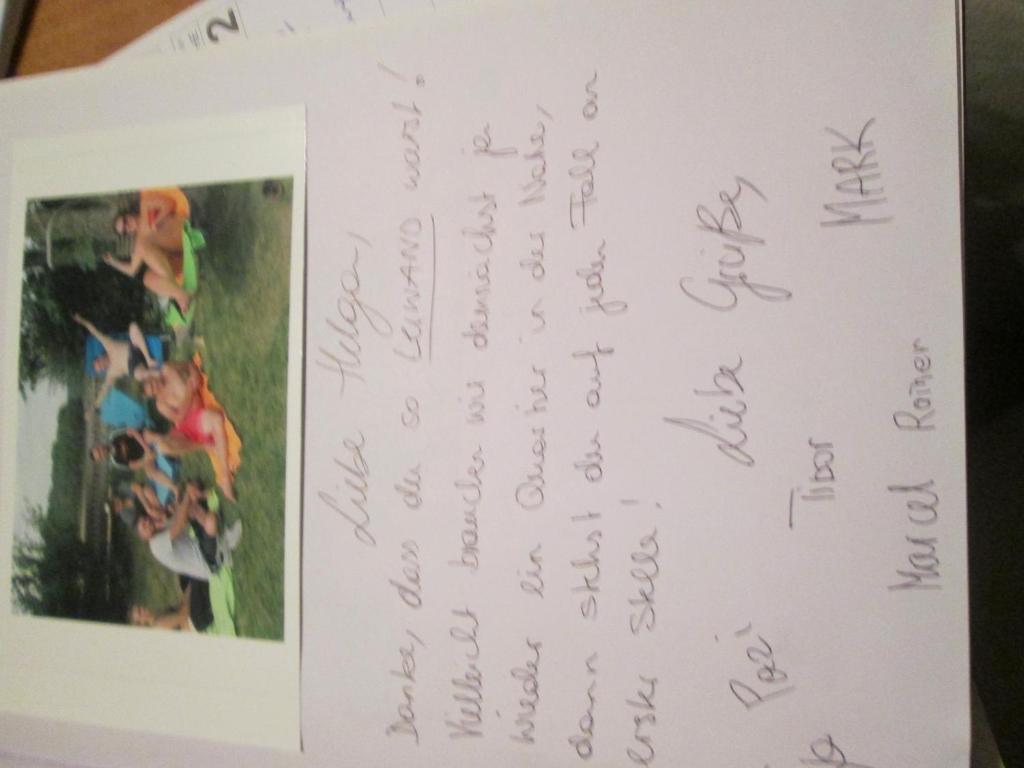 2
Liebe Helga,
Danke, dass du so LEIWAND warst!
Vielleicht brauchen wir demnächst ja
wieder ein Quartier in der Nähe,
dann stehst du auf jeden Fall an
erster Stelle!
Liebe Grüße,
Pezi Tibor MARK
Marcel Roman